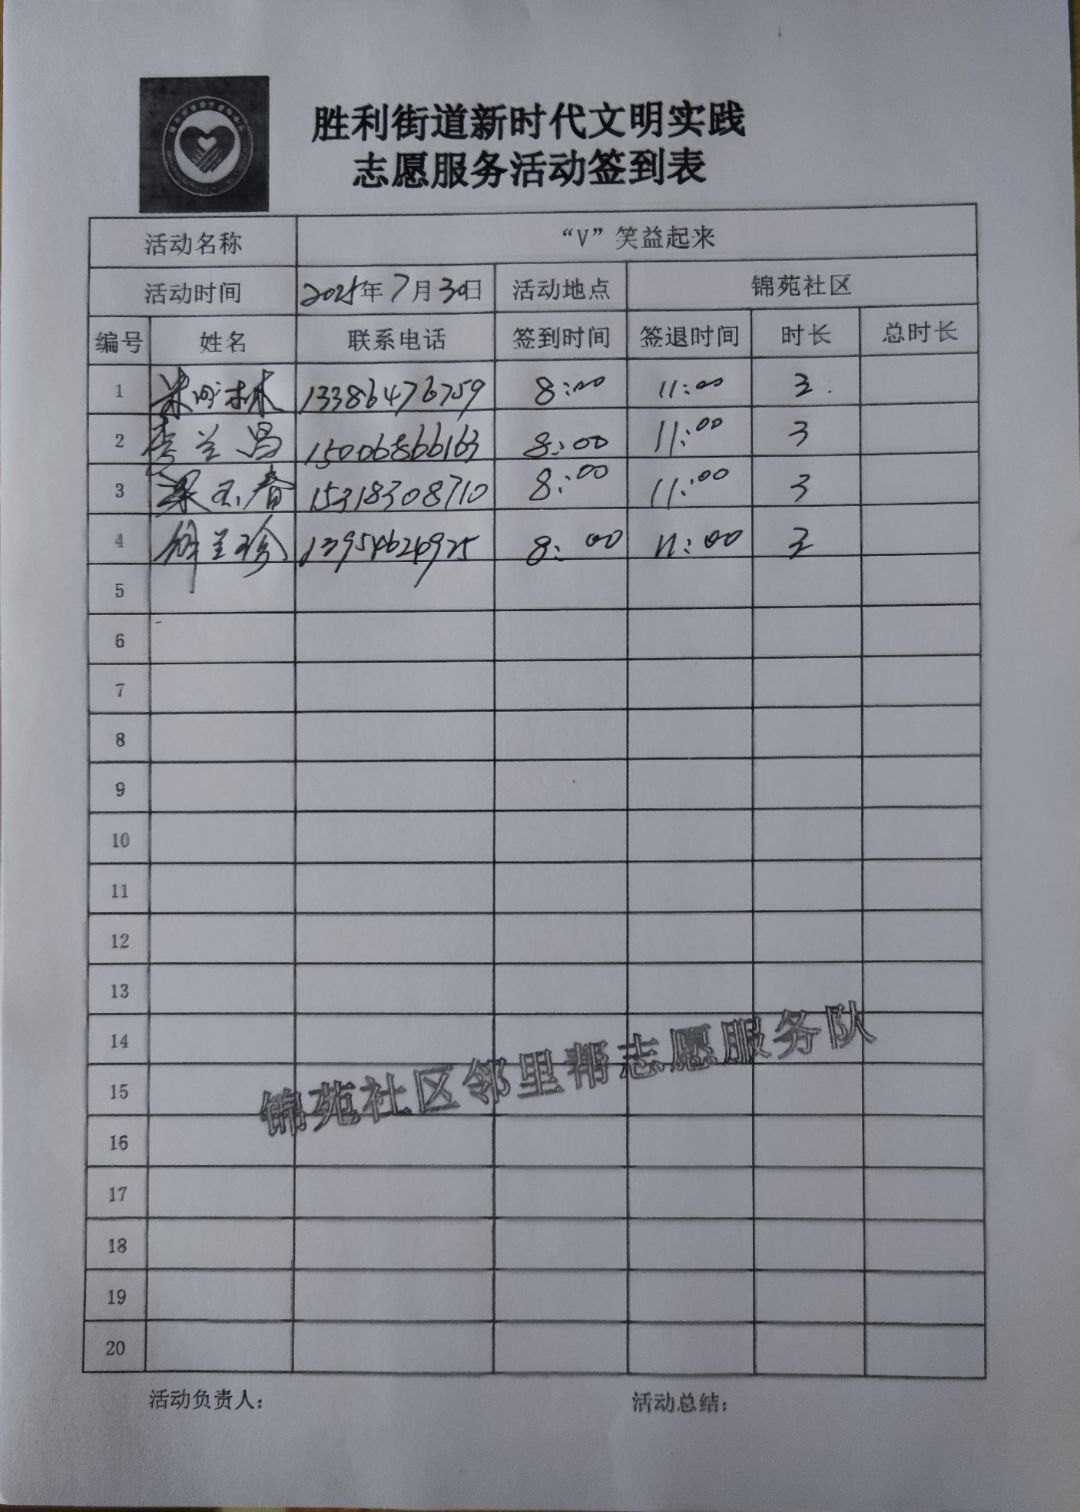 胜利街道新时代文明实践
志愿服务活动签到表
活动名称 “V”笑益起来
活动时间 2025年7月30日 活动地点 锦苑社区
编号 姓名 联系电话 签到时间 签退时间 时长 总时长
1 13386476759 8:00 11:00 3
2 李兰昌 15006866163 8:00 11:00 3
3 梁玉春 15318308710 8:00 11:00 3
4 徐兰珍 13954624925 8:00 11:00 3
5
6
7
8
9
10
11
12
13
14
15
16
17
18
19
20
锦苑社区邻里帮志愿服务队
活动负责人: 活动总结: